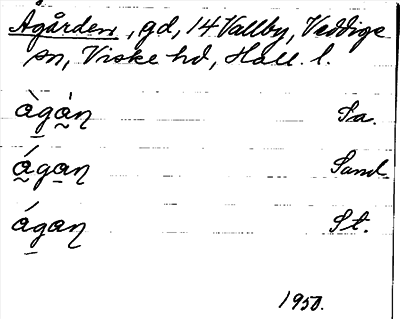 Ågården, gd, 14 Vallby, Veddige
sn, Viske hd, Hall. l.
àgàn̨ Sa.
ágan̨ Sand
ágan̨ St.
1950.